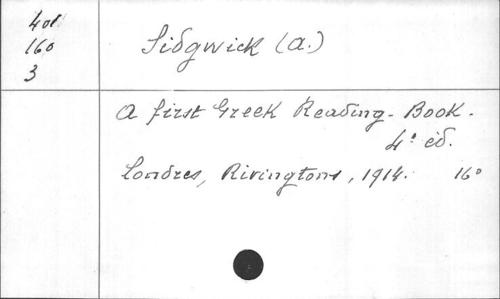 401
160
3
Sidgwick (A.)
A first Greek Reading-Book.
4e éd.
Londres, Rivingtons, 1914. 16o